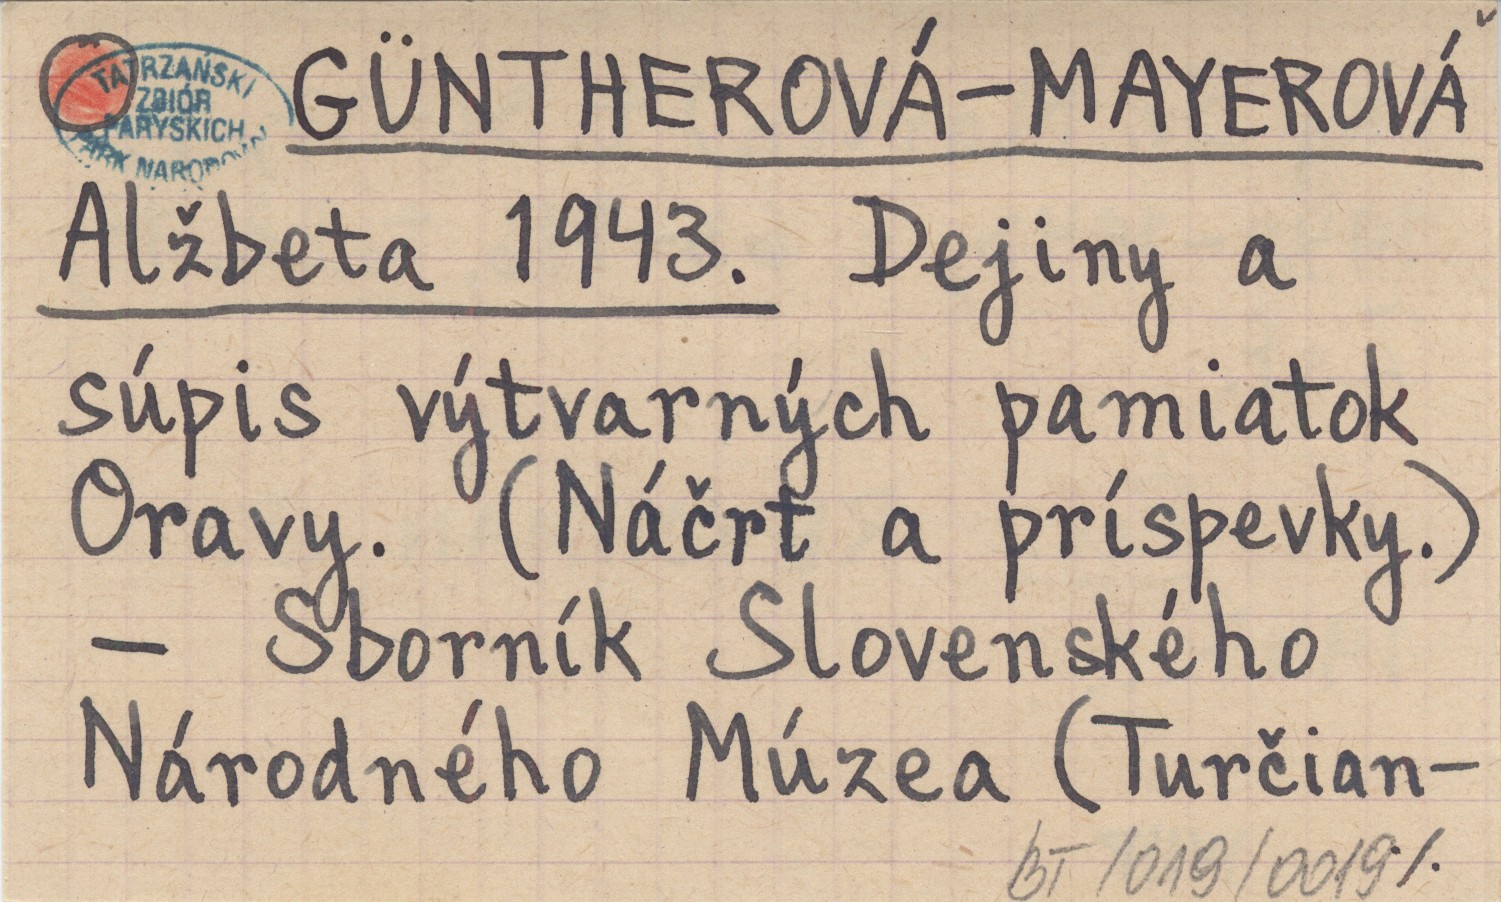 TATRZAŃSKI
ZBIÓR
PARYSKICH
PARK NARODOWY
GÜNTHEROVÁ-MAYEROVÁ
Alžbeta 1943. Dejiny a
súpis výtvarných pamiatok
Oravy. (Náčrt a príspevky.)
— Sborník Slovenského
Národného Múzea (Turčian-
BT/019/0019 /.